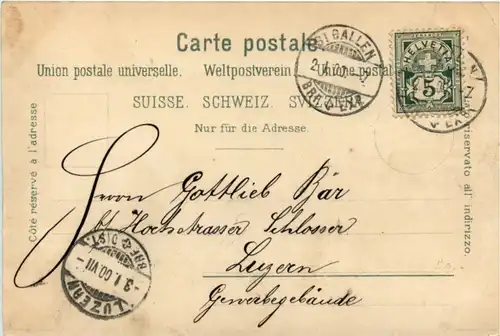 Carte postale.
Union postale universelle. Weltpostverein. Unione postale
SUISSE. SCHWEIZ. SVIZZERA.
Nur für die Adresse.
Côté réservé à l'adresse
riservato all' indirizzo.
ST. GALLEN
BRF. EXP.
HELVETIA
5
Herrn Gottlieb Bär
bei Hochstrasser Schlosser
Luzern
Gewerbegebäude
BRF. DIST.
3.I.00.VII-
LUZERN